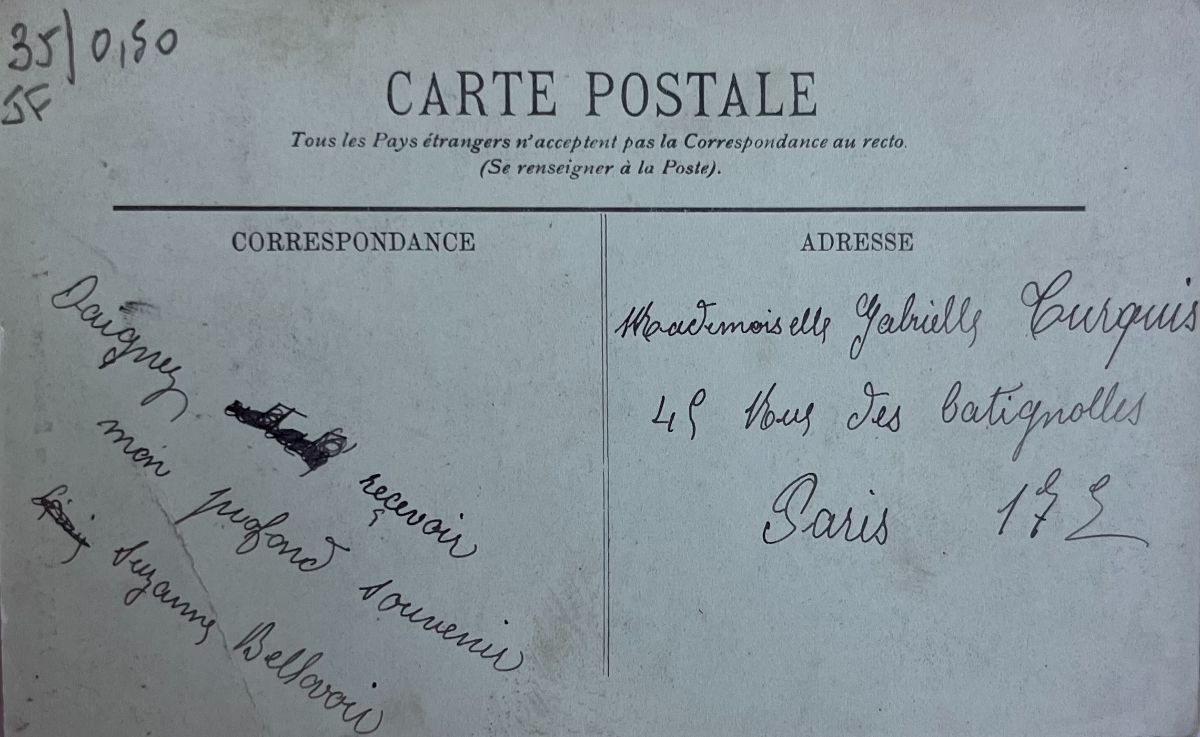 35/0,50
JF
CARTE POSTALE
Tous les Pays étrangers n'acceptent pas la Correspondance au recto.
(Se renseigner à la Poste).
CORRESPONDANCE
Daignez reçevoir
mon profond souvenir
Suzanne Bellavoir
ADRESSE
Mademoiselle Gabrielle Turquis
45 Rue des batignolles
Paris 17E